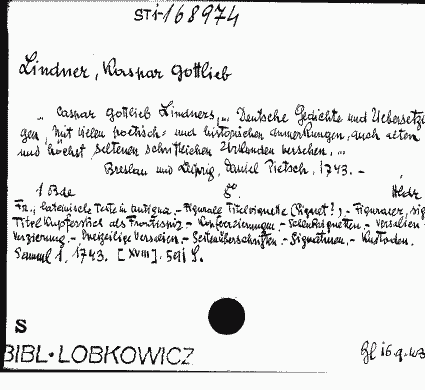 sti-168974
Lindner, Kaspar Gottlieb
„ Caspar Gottlieb Lindners,... Deutsche Gedichte und Uebersetzun
gen, mit vielen poetisch- und historischen Anmerkungen, auch alten
und höchst seltenen schriftlichen Urkunden versehen,...
Breslau und Leipzig, Daniel Pietsch, 1743. -
1 Bde 8°. Hldr
Fr., lateinische Texte in Antiqua. - Figurale Titelvignette (Signet?). - Figuraler, sig
Titelkupferstich als Frontispiz - Kopfverzierungen. - Schlussvignetten - Versalien -
Verzierung. - Dreizeilige Versalien. - Seitenüberschriften. - Signaturen. - Kustoden.
Samml 1, 1743. [XVIII]. 591 S.
S
BIBL·LOBKOWICZ
16.9.43